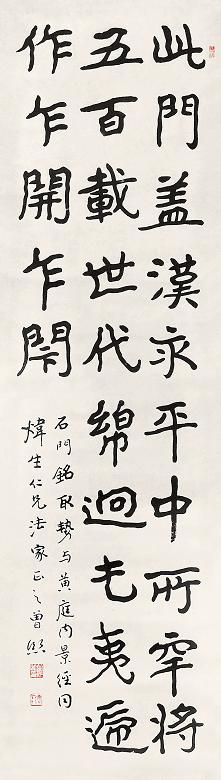 此門盖漢永平中所穿將
五百載世代綿迴屯夷遞
作乍開乍閇
石門銘取勢与黄庭内景經同
煒生仁兄法家正之曾熙